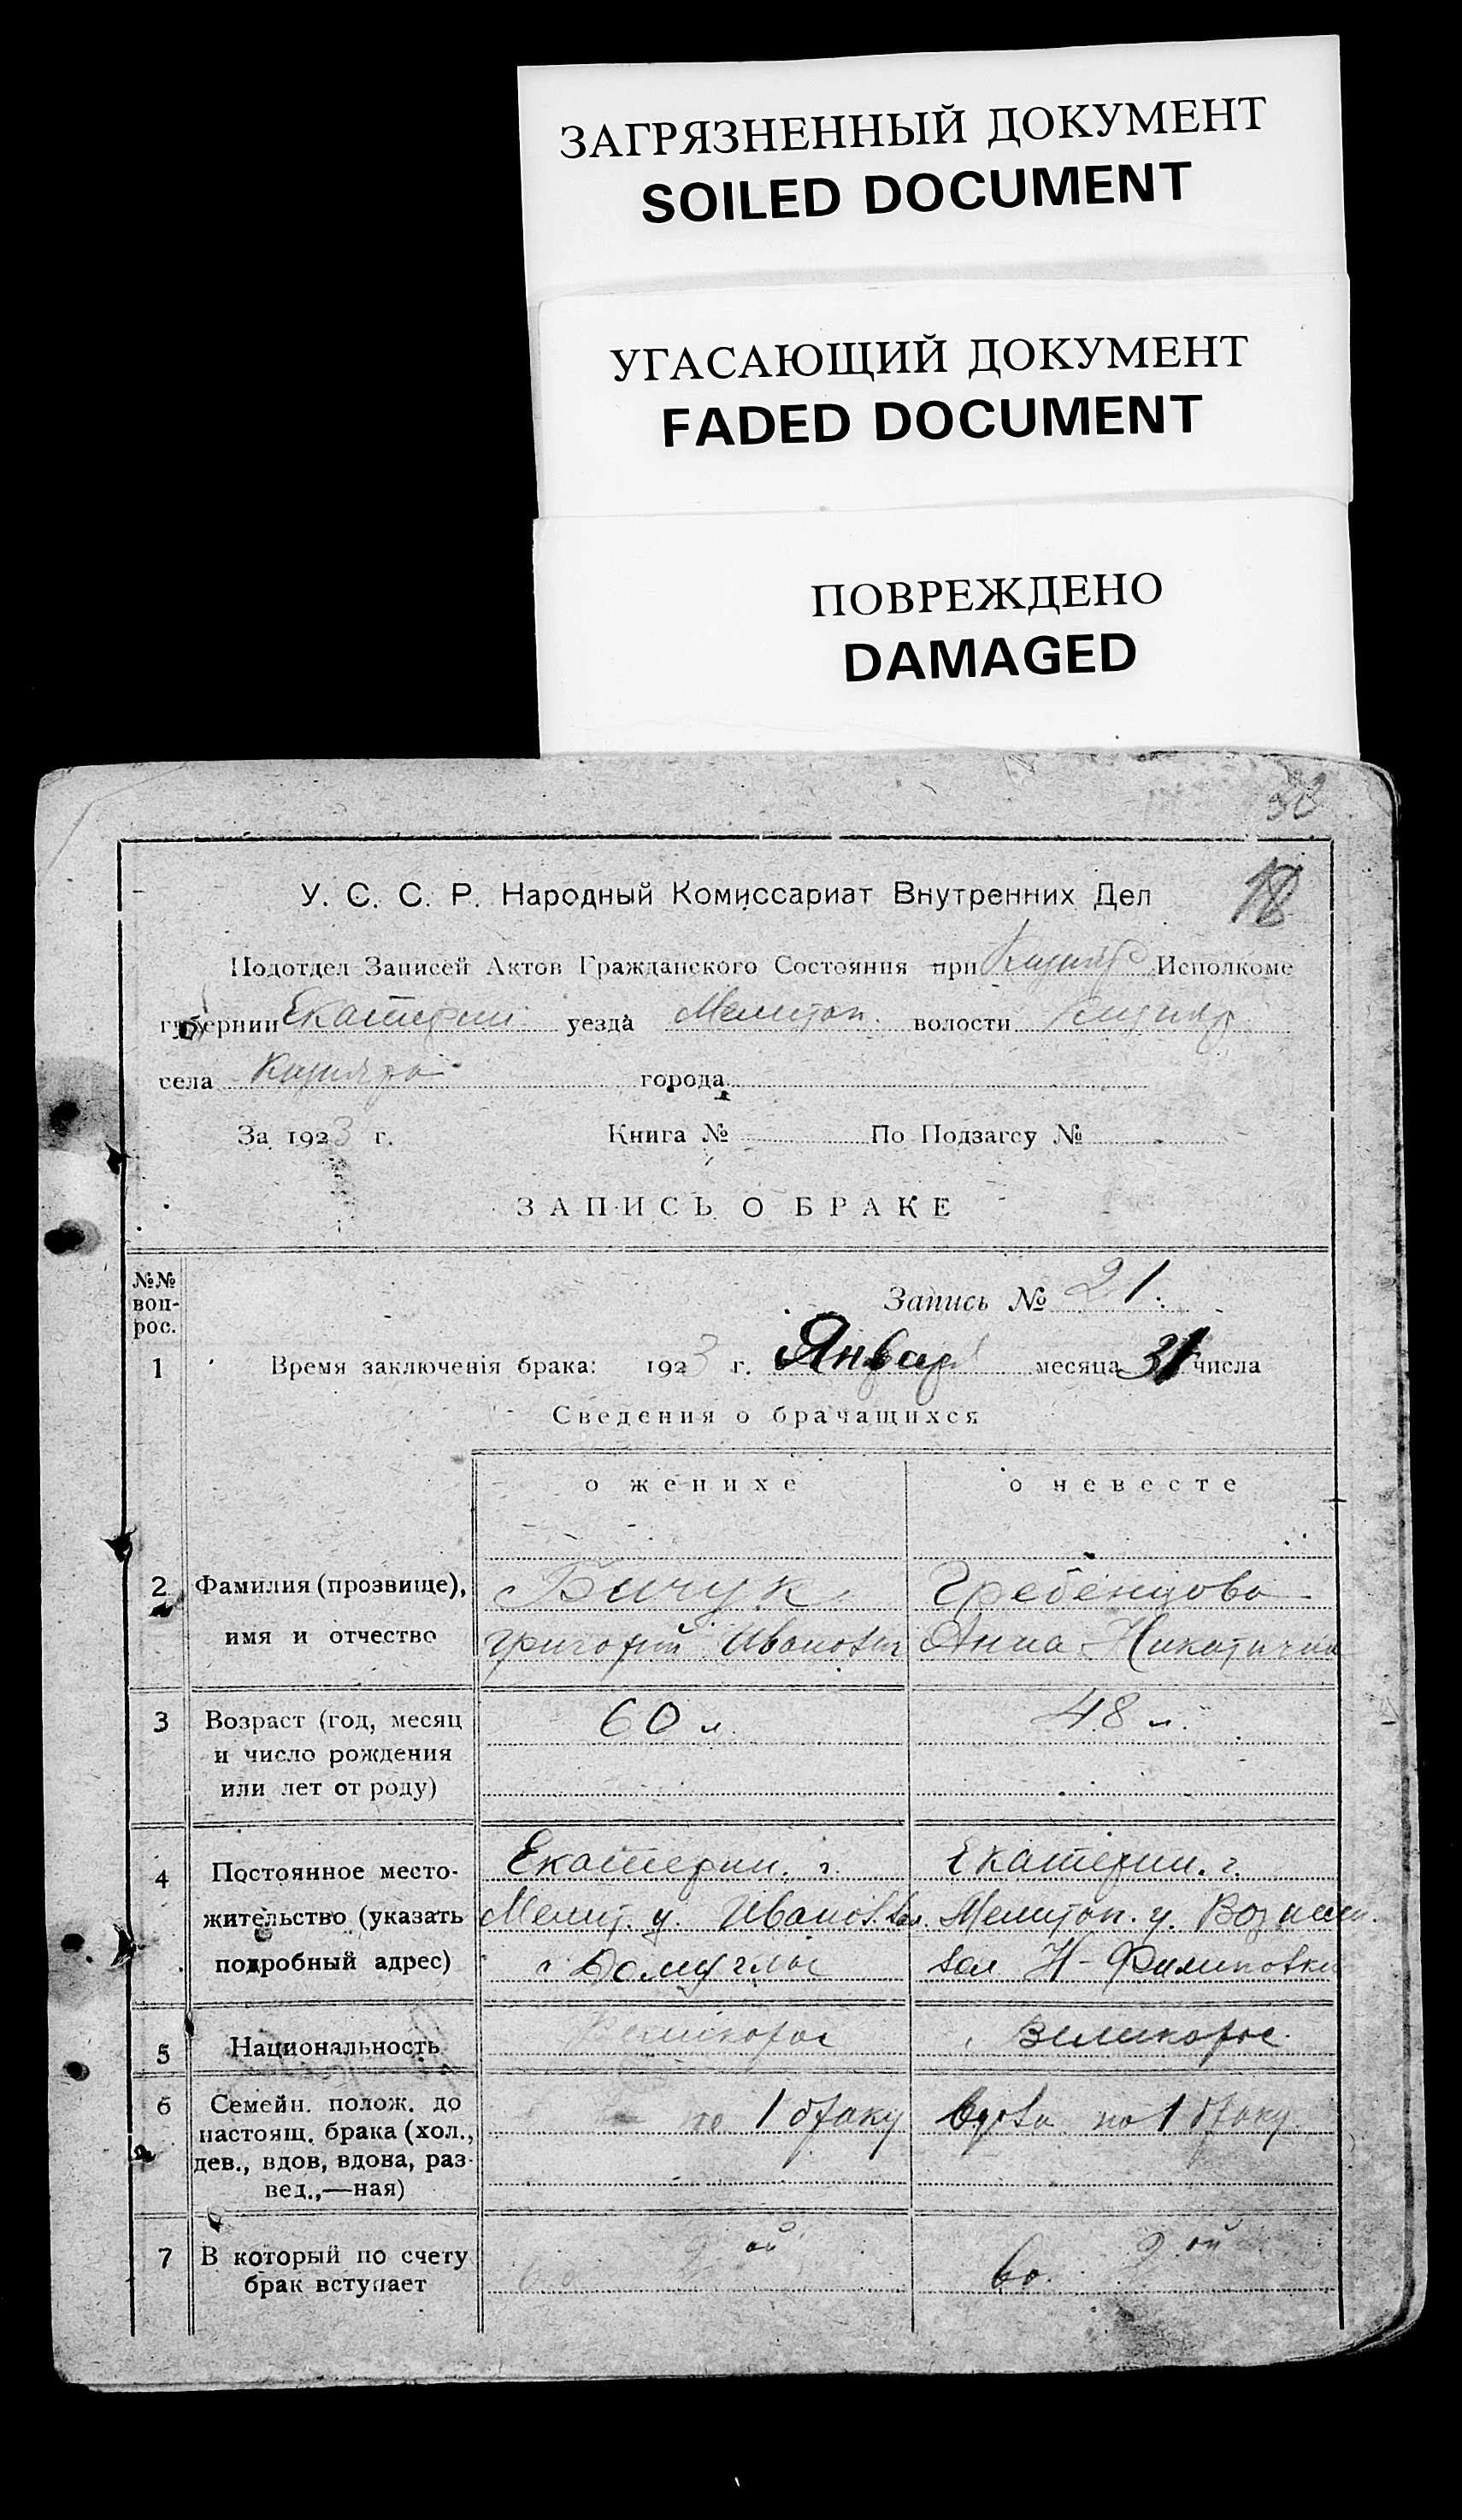 ЗАГРЯЗНЕННЫЙ ДОКУМЕНТ
SOILED DOCUMENT
УГАСАЮЩИЙ ДОКУМЕНТ
FADED DOCUMENT
ПОВРЕЖДЕНО
DAMAGED
18
У. С. С. Р. Народный Комиссариат Внутренних Дел
Подотдел Записей Актов Гражданского Состояния при Исполкоме
губернии Екатерин. уезда Мелитоп. волости
села города
За 1923 г. Книга № По Подзагсу №
ЗАПИСЬ О БРАКЕ
№№ воп-рос.
Запись № 21.
1 Время заключенія брака: 1923 г. Января месяца 31 числа
Сведения о брачащихся
о женихе о невесте
2 Фамилия (прозвище), Бичук Гребенцова
имя и отчество Григорий Иванович Анна
3 Возраст (год, месяц 60 л. 48 л.
и число рождения
или лет от роду)
4 Постоянное место- Екатерин. г. Екатерин. г.
жительство (указать Мелит. у. Мелитоп. у.
подробный адрес) Н-Филиповки
5 Национальность Великорос Великорос.
6 Семейн. полож. до по 1 браку вдова по 1 браку
настоящ. брака (хол.,
дев., вдов, вдова, раз-
вед.,—ная)
7 В который по счету 2 ой во 2 ой
брак вступает